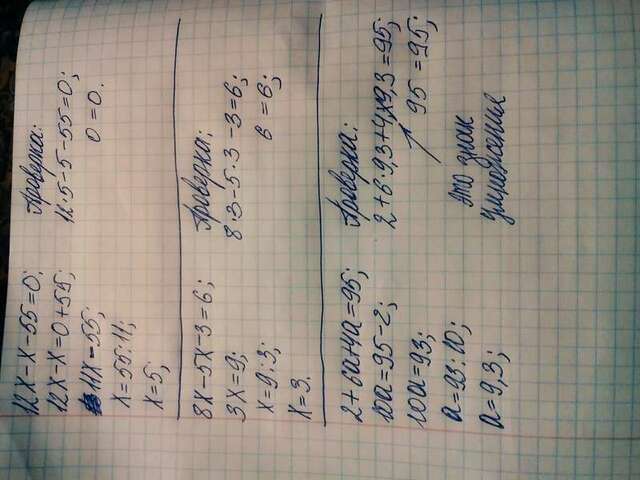 12x-x-55=0;
12x-x=0+55;
11x-55;
x=55:11;
x=5;
Проверка:
12·5-5-55=0;
0=0.
8x-5x-3=6;
3x=9;
x=9:3;
x=3.
Проверка:
8·3-5·3-3=6;
6=6;
2+6a+4a=95;
10a=95-2;
10a=93;
a=93:10;
a=9,3;
Проверка:
2+6·9,3+4x9,3=95;
95=95;
это знак
умножения